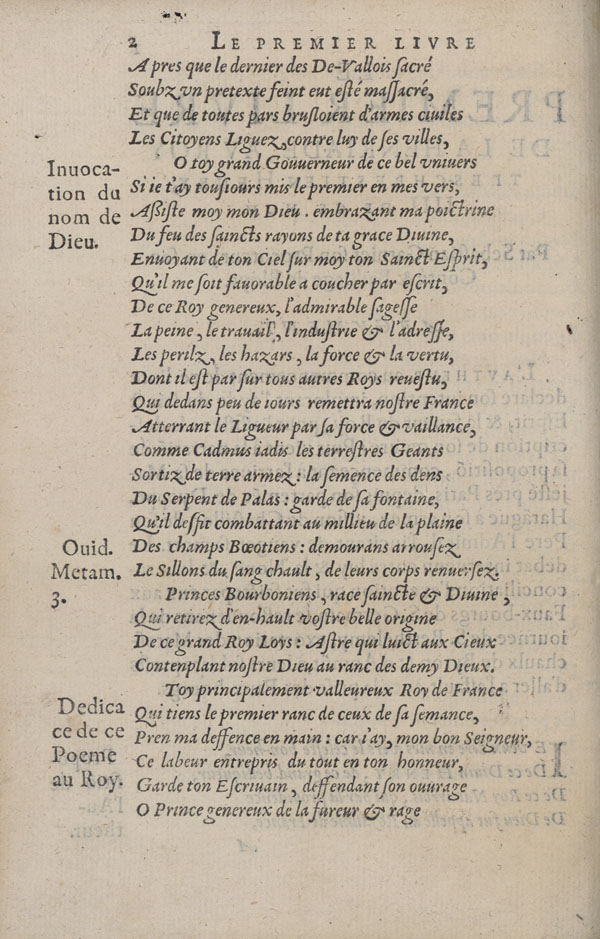 2 LE PREMIER LIVRE
Apres que le dernier des De-Vallois sacré
Soubz vn pretexte feint eut esté massacré,
Et que de toutes pars brusloient d'armes ciuiles
Les Citoyens Liguez, contre luy de ses villes,
Inuoca-
tion du
nom de
Dieu.
O toy grand Gouuerneur de ce bel vniuers
Si ie t'ay tousiours mis le premier en mes vers,
Aßiste moy mon Dieu . embrazant ma poictrine
Du feu des saincts rayons de ta grace Diuine,
Enuoyant de ton Ciel sur moy ton Sainct Esprit,
Qu'il me soit fauorable a coucher par escrit,
De ce Roy genereux, l'admirable sagesse
La peine, le trauail, l'industrie & l'adresse,
Les perilz, les hazars, la force & la vertu,
Dont il est par sur tous autres Roys reuestu,
Qui dedans peu de iours remettra nostre France
Atterrant le Ligueur par sa force & vaillance,
Comme Cadmus iadis les terrestres Geants
Sortiz de terre armez : la semence des dens
Du Serpent de Palas : garde de sa fontaine,
Qu'il deffit combattant au millieu de la plaine
Ouid.
Metam.
3.
Des champs Bœotiens : demourans arrousez
Le Sillons du sang chault, de leurs corps renuersez.
Princes Bourboniens, race saincte & Diuine,
Qui retirez d'en-hault vostre belle origine
De ce grand Roy Loys : Astre qui luict aux Cieux
Contenplant nostre Dieu au ranc des demy Dieux.
Dedica
ce de ce
Poeme
au Roy.
Toy principalement valleureux Roy de France
Qui tiens le premier ranc de ceux de sa semance,
Pren ma deffence en main : car i'ay, mon bon Seigneur,
Ce labeur entrepris du tout en ton honneur,
Garde ton Escriuain, deffendant son ouurage
O Prince genereux de la fureur & rage